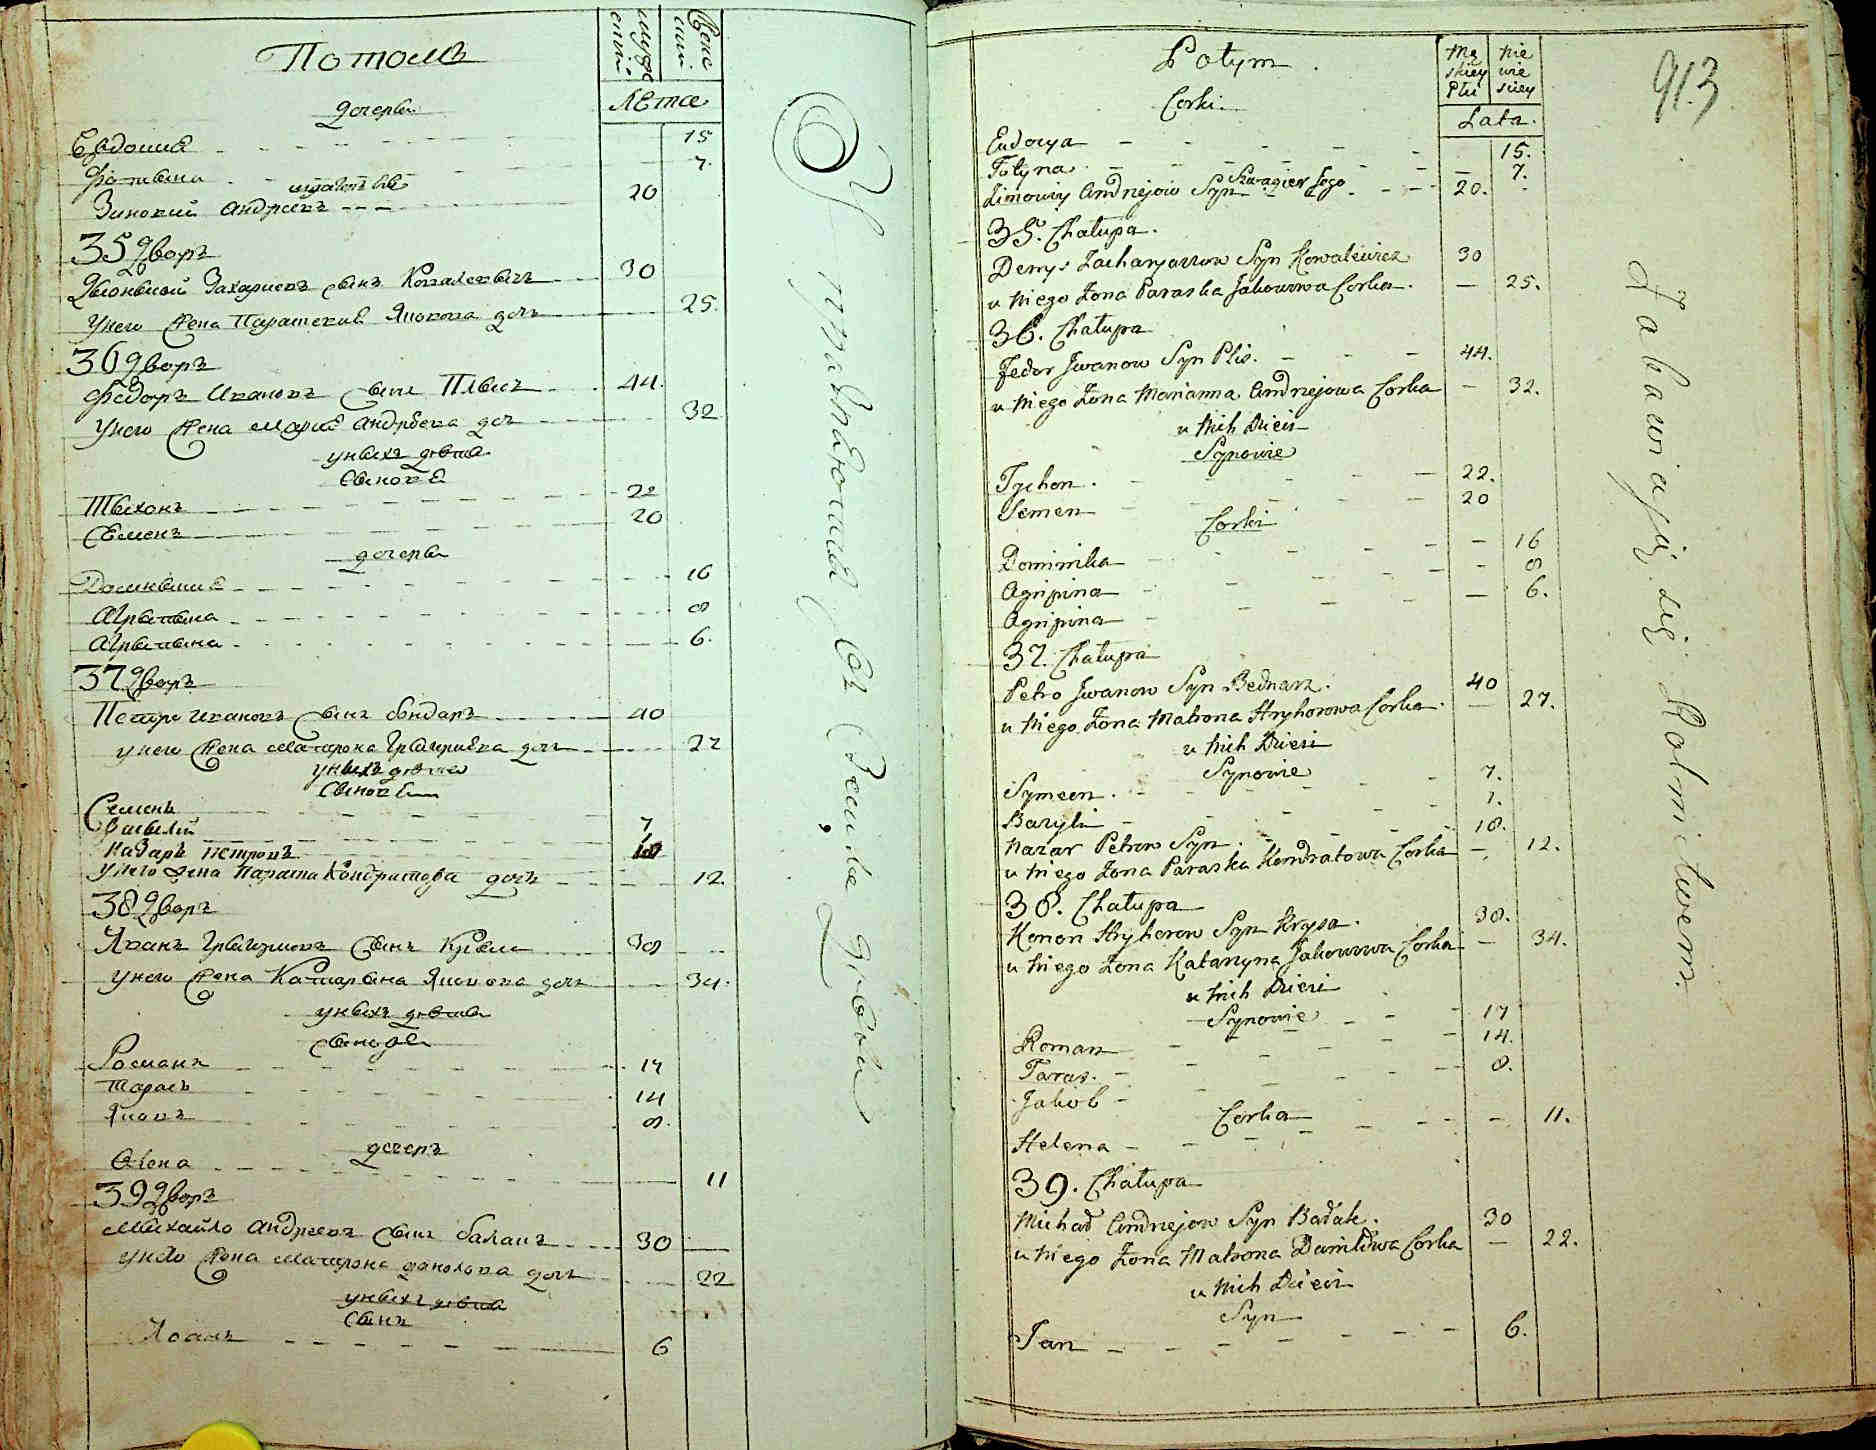 Потомъ
мужескій
женскій
Лѣта
дочери
Евдокия 15
Фотина 7.
шуринъ его
Зиновий Андреевъ 20
35 дворъ
Дионисий Захариевъ сынъ Ковалевичъ 30
у него жена Параскева Якова доч 25.
36 дворъ
Федоръ Ивановъ сынъ Плисъ 44.
у него жена Мария Андреева доч 32
у нихъ дѣти
Синовѣ
Тихонъ 22
Семенъ 20
дочери
Доминикия 16
Агрипина 8
Агрипина 6.
37 дворъ
Петро Ивановъ сынъ бондаръ 40
у него жена Матрона Григориева доч 27
у нихъ дѣти
Синовѣ
Семенъ
Василий 7
Назаръ Петровъ 18
у него жена Параска Кондратова дочъ 12.
38 дворъ
Григориевъ сынъ Криса 38
у него жена Катарина Якова доч 34.
у нихъ дѣти
синове
Романъ 17
Тарасъ 14
Яковъ 8.
дочеръ
Олена 11
39 дворъ
Михайло Андреевъ сынъ балакъ 30
у него жена Матрона Данилова доч 22
у нихъ дѣти
Синъ
Иоанъ 6
упражняются въ земледѣлии
Potym.
Męskiey Płci
Niewieściey
Lata.
913
Corki.
Eudocya 15.
Fotyna 7.
Szwagier Jego
Zimowiy Andrejow Syn 20.
35. Chałupa.
Denys Zacharyaszow Syn Kowalewicz 30
u Niego Żona Paraska Jakowowa Corka. 25.
36. Chałupa
Fedor Jwanow Syn Plis. 44.
u Niego Żona Marianna Andrzejowa Corka 32.
u Nich Dzieci
Synowie
Tychon. 22.
Semen 20
Corki
Dominika 16
Agripina 8
Agripina 6.
37. Chałupa
Petro Jwanow Syn Bednarz. 40
u Niego Żona Matrona Hryhorowa Corka. 27.
u Nich Dzieci
Synowie
Symeon. 7.
Bazyli 1.
Nazar Petrow Syn. 18.
u Niego Żona Paraska Kondratowa Corka 12.
38. Chałupa
Konon Hryhorow Syn Krysa. 38.
u Niego Żona Katarzyna Jakowowa Corka 34.
u Nich Dzieci
Synowie
Roman 17
Taras. 14.
Jakob 8.
Corka
Helena 11.
39. Chałupa
Michał Andrzejow Syn Bałak. 30
u Niego Żona Matrona Daniłowa Corka 22.
u Nich Dzieci
Syn
Jan 6.
Zabawiają się Rolnictwem.